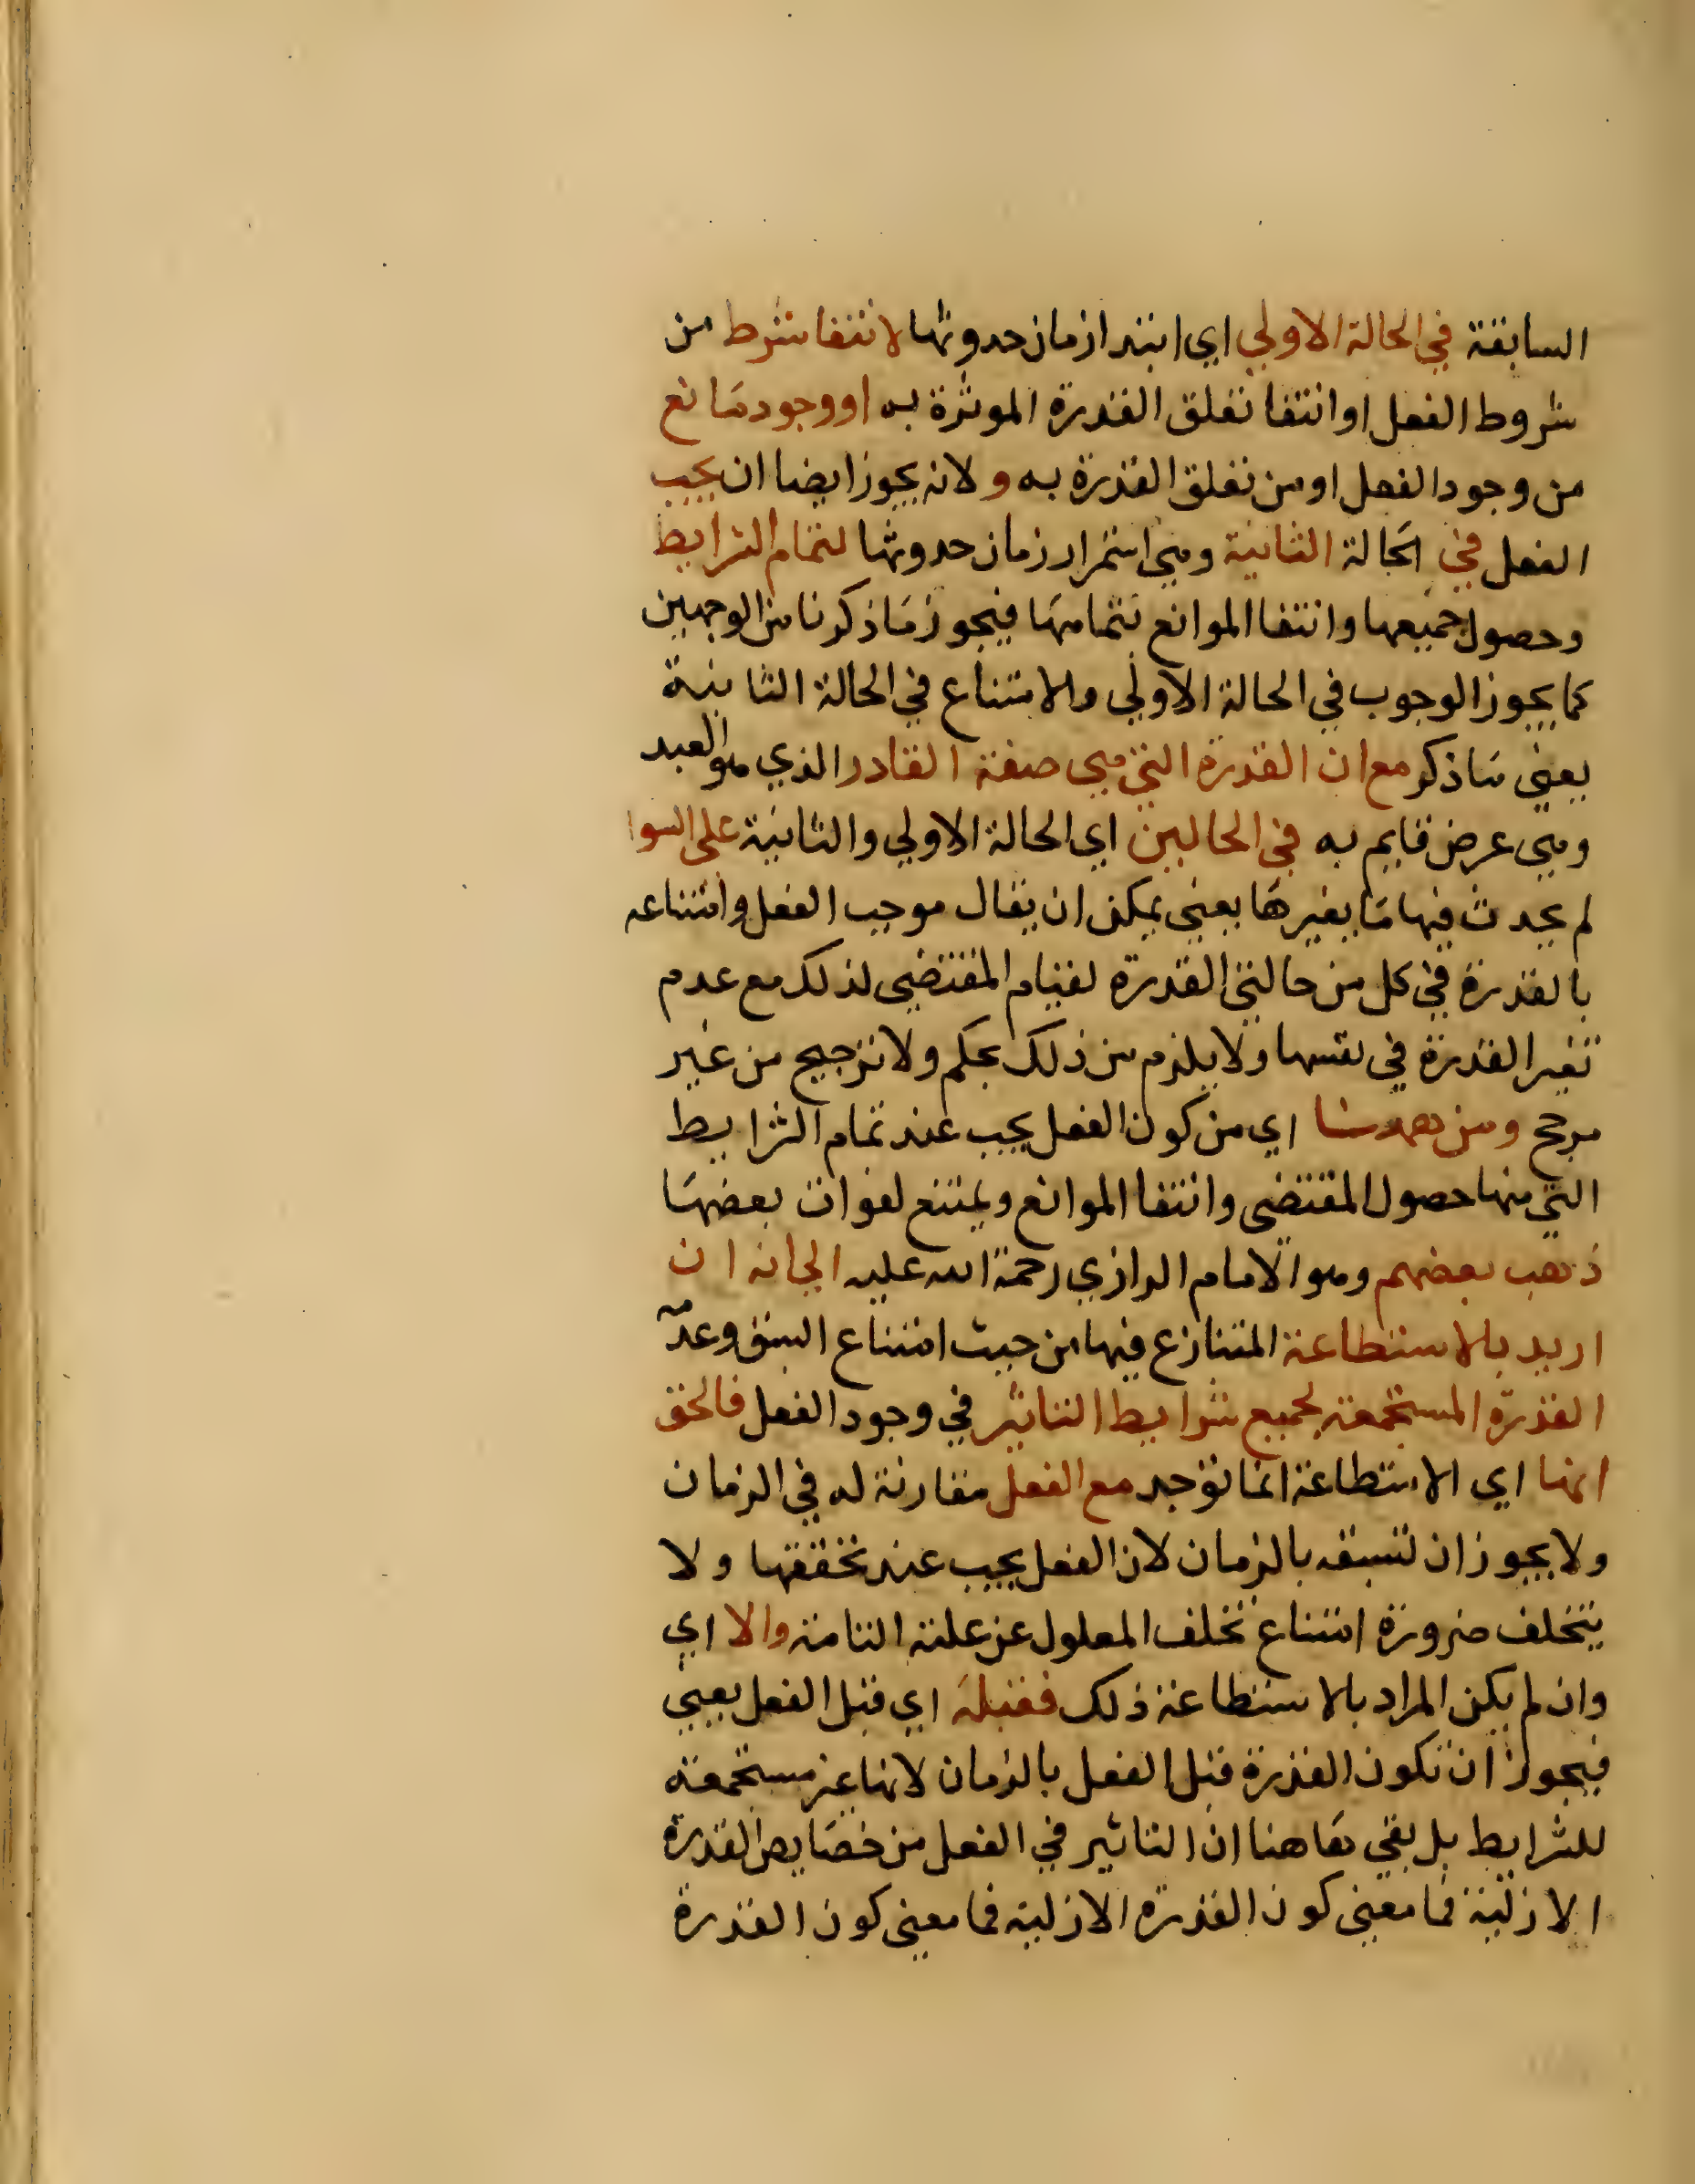 السابقة في الحالة الاولي اي ابتدا زمان حدوثها لانتفا شرط من
شروط الفعل او انتفا تعلق القدرة الموثرة به او وجود مانع
من وجود الفعل او من تعلق القدرة به و لانه يجوز ايضا ان يجب
الفعل في الحالة الثانية وهي استمرار زمان حدوثها لتمام الشرايط
وحصول جميعها وانتفا الموانع بتمامها فيجوز ما ذكرنا من الوجهين
كما يجوز الوجوب في الحالة الاولي والامتناع في الحالة الثانية
يعني ما ذكر مع ان القدرة التي هي صفة القادر الذي هو العبد
وهي عرض قايم به في الحالين اي الحالة الاولي والثانية علي السوا
لم يحدث فيها ما يغيرها يعني يمكن ان يقال موجب الفعل وامتناعه
بالقدرة في كل من حالتي القدرة لقيام المقتضي لذلك مع عدم
تغير القدرة في نفسها ولا يلزم من ذلك تحكم ولا ترجيح من غير
مرجح ومن ههنا اي من كون الفعل يجب عند تمام الشرايط
التي منها حصول المقتضي وانتفا الموانع ويمتنع لفوات بعضها
ذهب بعضهم وهو الامام الرازي رحمة الله عليه الي انه ان
اريد بالاستطاعة المتنازع فيها من حيث امتناع السبق وعدمه
القدرة المستجمعة لجميع شرايط التاثير في وجود الفعل فالحق
انها اي الاستطاعة انما توجد مع الفعل مقارنة له في الزمان
ولا يجوز ان تسبقه بالزمان لان الفعل يجب عند تحققها ولا
يتخلف ضرورة امتناع تخلف المعلول عن علته التامة والا اي
وان لم يكن المراد بالاستطاعة ذلك فقبله اي قبل الفعل يعني
فيجوز ان تكون القدرة قبل الفعل بالزمان لانها غير مستجمعة
للشرايط بل بقي هاهنا ان التاثير في الفعل من خصايص القدرة
الازلية فما معني كون القدرة الازلية فما معني كون القدرة